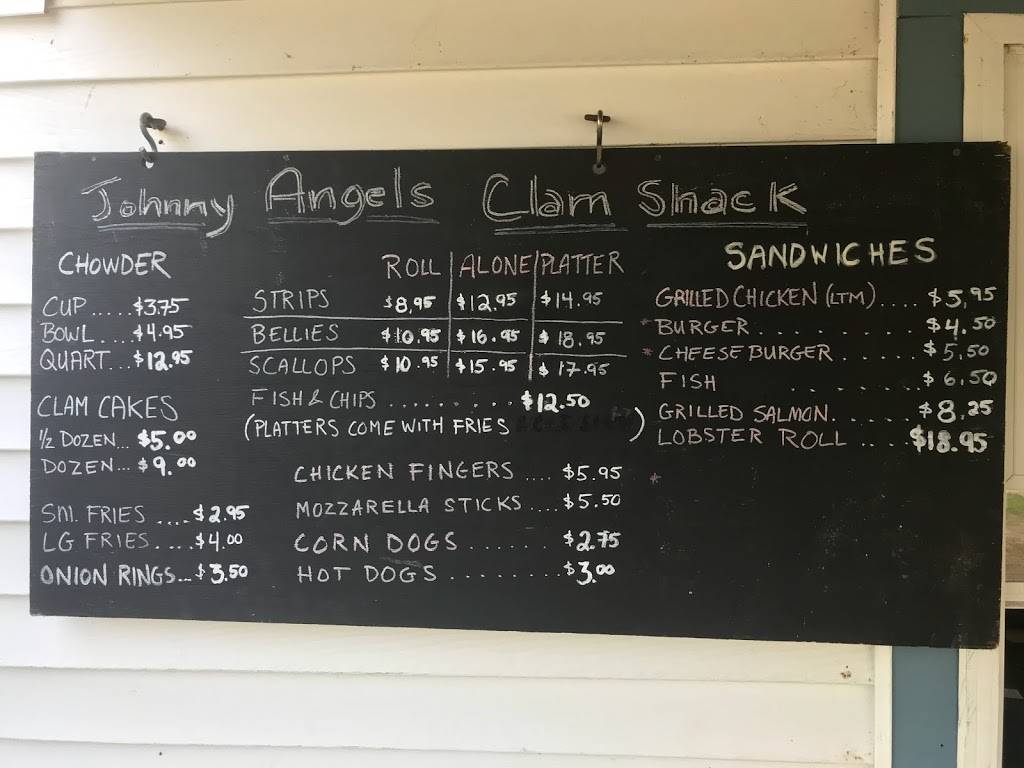 Johnny Angels Clam Shack
CHOWDER
CUP ..... $3.75
BOWL .... $4.95
QUART... $12.95
CLAM CAKES
1/2 DOZEN... $5.00
DOZEN... $9.00
SM. FRIES .... $2.95
LG FRIES..... $4.00
ONION RINGS... $3.50
ROLL ALONE PLATTER
STRIPS $8,95 $12.95 $14.95
BELLIES $10.95 $16.95 $18.95
SCALLOPS $10.95 $15.95 $17.95
FISH & CHIPS .......... $12.50
(PLATTERS COME WITH FRIES )
CHICKEN FINGERS .... $5.95
MOZZARELLA STICKS .... $5.50
CORN DOGS ....... $2.75
HOT DOGS ......... $3.00
SANDWICHES
GRILLED CHICKEN (LTM).... $5,95
*BURGER ......... $4.50
*CHEESEBURGER ...... $5.50
FISH ........ $6,50
GRILLED SALMON....... $8,25
LOBSTER ROLL ..... $18.95
*